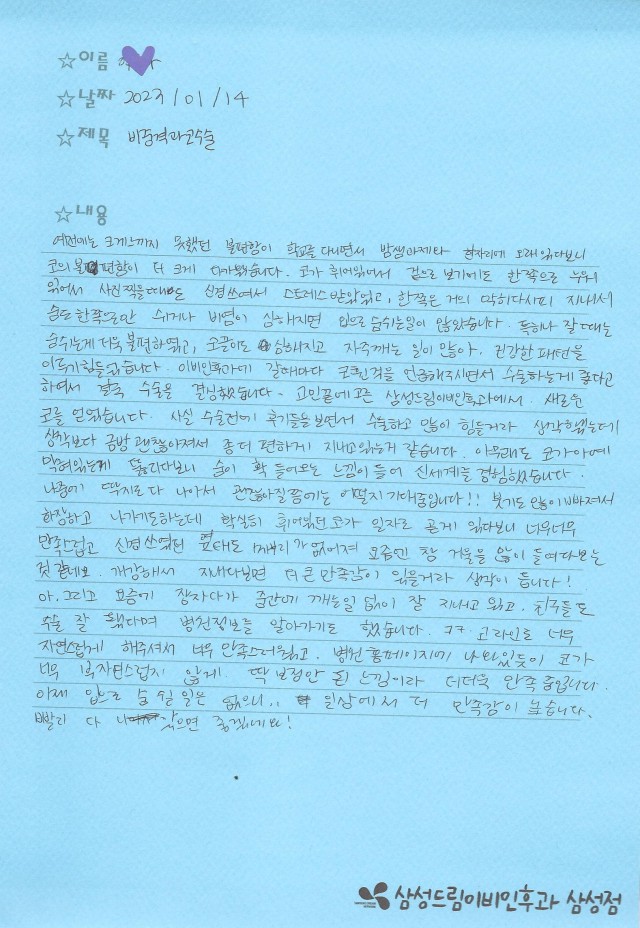 ☆이름
☆날짜 2023/01/14
☆제목 비중격과코수술
☆내용
예전에는 크게느끼지 못했던 불편함이 학교를 다니면서 밤샘아예타 한자리에 오래있다보니
코의 불편함이 더 크게 다가왔습니다. 코가 휘어있어서 겉으로 보기에도 한쪽으로 누워
있어서 사진찍을때도 신경쓰여서 스트레스 받았었고, 한쪽은 거의 막히다시피 지내서
숨도 한쪽으로만 쉬거나 비염이 심해지면 입으로 숨쉬는일이 많았습니다. 특히나 잘때는
숨쉬는게 더욱 불편하였고, 코골이도 심해지고 자주깨는 일이 많아. 건강한 패턴을
이루기힘들었습니다. 이비인후과에 갈때마다 코뼈를 언급해주시면서 수술하는게 좋다고
하여서 결국 수술을 결심했습니다. 고민끝에고른 삼성드림이비인후과에서 새로운
코를 얻었습니다. 사실 수술전에 후기들을보면서 수술하고 많이 힘들거라 생각했는데
생각보다 금방 괜찮아져서 좀더 편하게 지내고있는거 같습니다. 아무래도 코가아예
막혀있는게 뚫리다보니 숨이 확 들어오는 느낌이 들어 신세계를 경험했습니다.
나중에 딱지도 다 나아서 괜찮아질쯤에는 어떨지 기대중입니다!! 붓기도 많이 빠져서
화장하고 나가기도하는데 확실히 휘어있던 코가 일자로 곧게 있다보니 너무너무
만족스럽고 신경쓰였던 옆태도 매부리가 없어져 요즘엔 참 거울을 많이 들여다보는
것 같네요. 개강해서 지내다보면 더 큰 만족감이 있을거라 생각이 듭니다!
아. 그리고 요즘에 잠자다가 중간에 깨는일 없이 잘 지내고 있고. 친구들도
수술 잘 됐다며 병원정보를 알아가기도 했습니다. ㅋㅋ 코라인도 너무
자연스럽게 해주셔서 너무 만족스러웠고. 병원 홈페이지에 나와있듯이 코가
너무 부자연스럽지 않게. 딱 보정만 된 느낌이라 더더욱 만족중입니다.
이제 입으로 숨 쉴 일은 없으니.. 일상에서 더 만족감이 높습니다.
빨리 다 나았으면 좋겠네요!
삼성드림이비인후과 삼성점